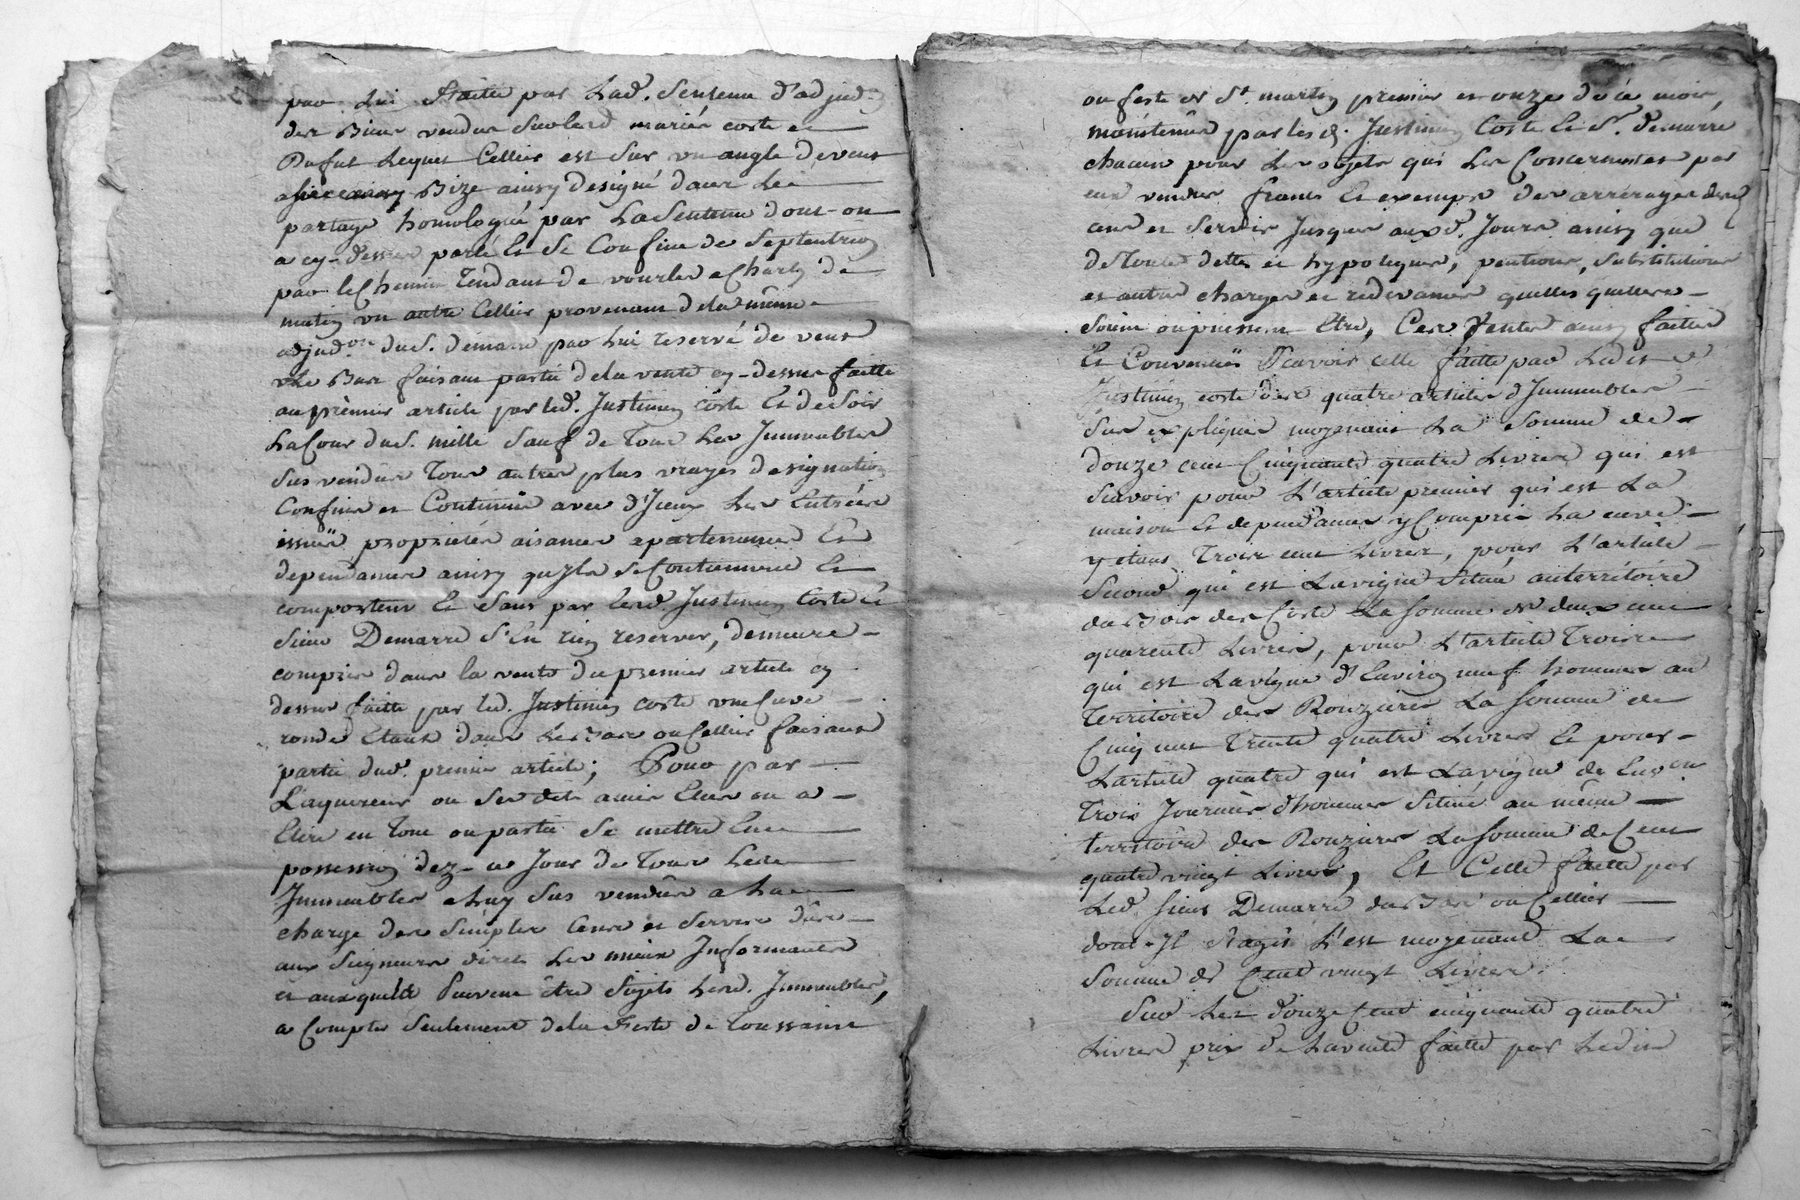 par lui faite par Lad. Sentence d'adjud.
des Biens vendus sur lesd mariés coste et
Dufut Lequel Cellier est sur un angle devent
Bize ainsy designé dans le
partage homologué par La Sentence dont on
a cy-dessus parlé Et Se Confine de Septentrion
par le Chemin Tendant de vourles a Charly de
matin un autre Cellier provenant dela même
adjud.on dud. S. demarre par Lui reservé de vent
Le Bas faisant partie dela vente cy-dessus faitte
au prèmier article par led. Justinien coste Et de soir
La Cour dud. mille Sauf de Tous Les Immeubles
sus vendus Tous autres plus vrayes designation
Confins et Contenüe avec d'Iceux Les Entrées
issües proprietés aisances apartenances Et
dependances ainsy qu'Ils se Contiennent Et
comportent Et sans par lesd. Justinien Coste Et
sieur Demarre s'En rien reserver, demeure
compris dans la vente du premier article cy
dessus faitte par led. Justinien coste une cuve
ronde Etant dans Le ou Cellier faisant
partie dud. premier article; Pour par
L'aquereur ou Ses dits amis Elus ou a
Elire en Tout ou partie Se mettre En
possession dez-ce Jour de Tous Lesd
Immeubles a Luy Sus vendus a La
charge des Simples Cens et Servis dûs
aux Seigneurs directs Les mieux Informances
et auxquels Peuvent être Sujets Lesd. Immeubles,
a Compter Seulement dela Feste de Toussaint
ou feste de St. martin premier et onze de ce mois,
maintenüs par les d. Justinien Coste Et Sr. demarre
chacun pour Les objets qui Les Concernent et par
eux vendus francs Et exempts des arrérages desd
cens et Servis Jusques auxd. Jours ainsy que
de Toutes dettes et hypoteques, pentions, substitutions
et autres charges et redevances quelles quelles
soient ou puissent Etre, Ces Ventes ainsy faittes
Et Convenües Sçavoir celle faitte par Ledit
Justinien coste des quatre articles d'Immeubles
Sus expliqués moyenant La Somme de
douze cent Cinquante quatre Livres qui est
sçavoir pour L'article premier qui est La
maison Et dependances y Compris La cuve
y etant Trois cent Livres, pour L'article
Second qui est La vigne Située au territoire
des Coste La somme de deux cent
quarente Livres, pour L'article Troisie
qui est La vigne d'Environ neuf hommées au
Territoire des Rouzieres La somme de
Cinq cent Trente quatre Livres Et pour
L'article quatre qui est La vigne de Environ
Trois Journées d'hommes Située au même
territoire des Rouzieres La somme de Cent
quatre vingt Livres, Et Celle faitte par
Led. sieur Demarre du ou Cellier
dont Il s'agit L'est moyenant La
somme de Cent vingt Livres.
Sur Les douze Cent cinquante quatre
Livres prix de La vente faitte par Ledit